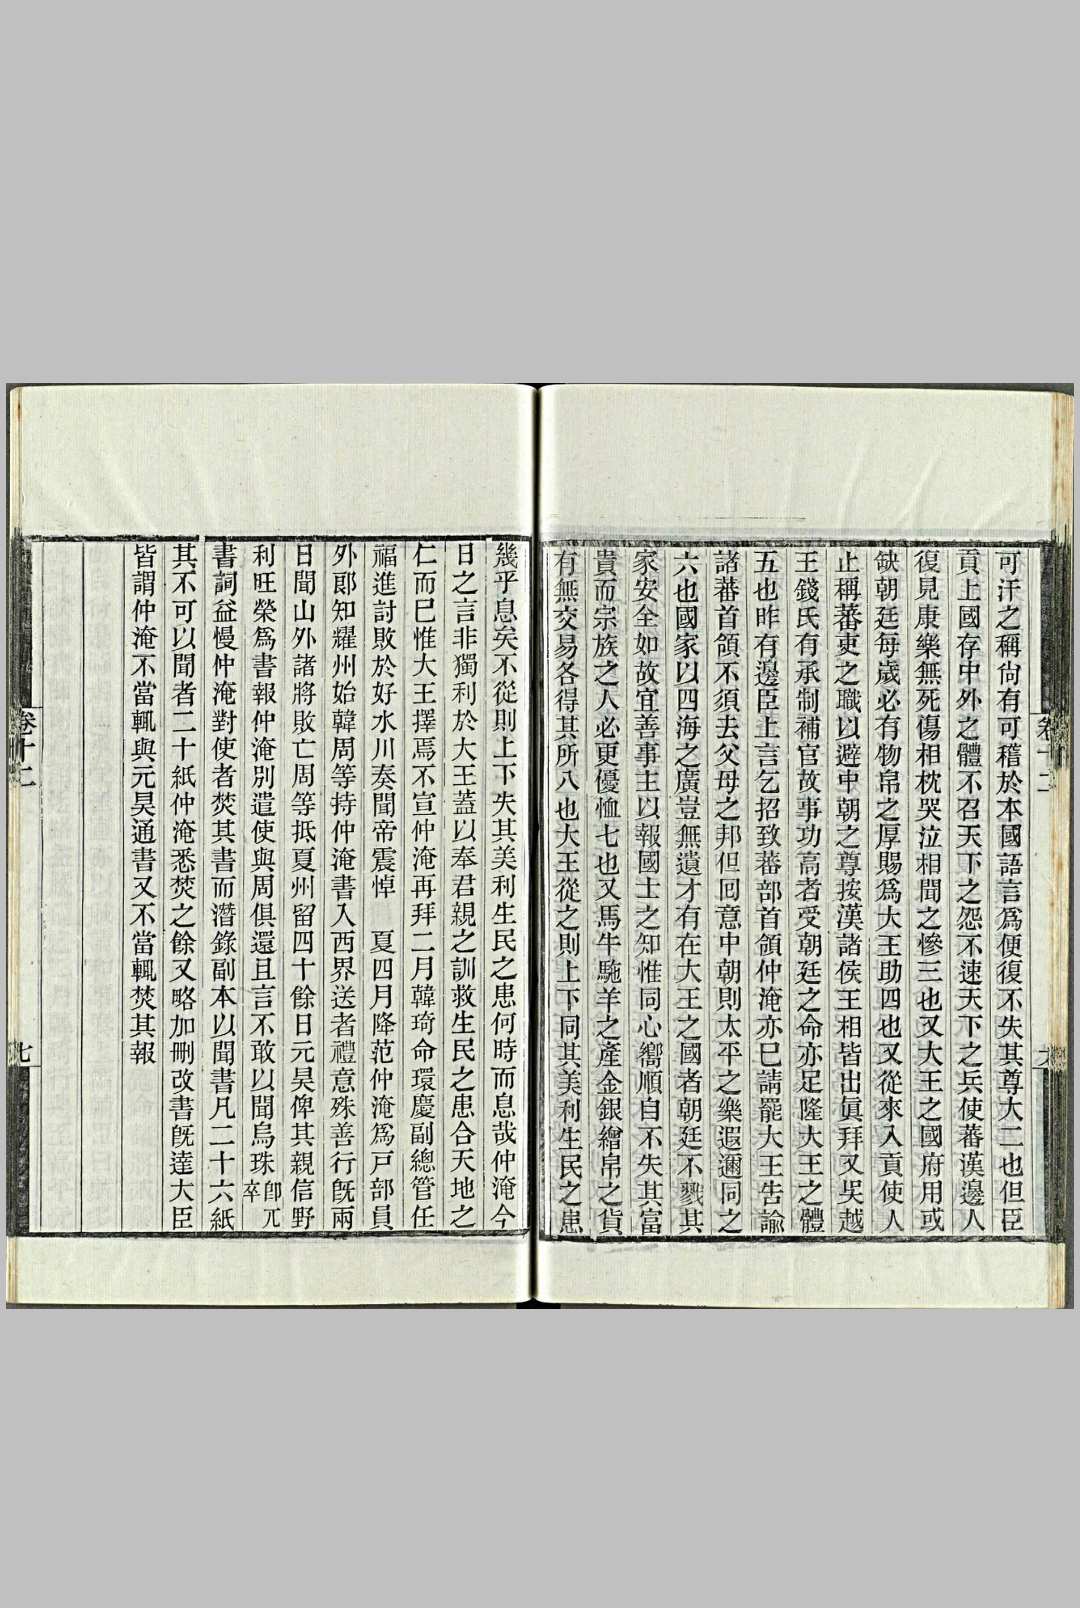 可汗之稱尙有可稽於本國語言爲便復不失其尊大二也但臣
貢上國存中外之體不召天下之怨不速天下之兵使蕃漢邊人
復見康樂無死傷相枕哭泣相聞之慘三也又大王之國府用或
缺朝廷每歲必有物帛之厚賜爲大王助四也又從來入貢使人
止稱蕃吏之職以避中朝之尊按漢諸侯王相皆出眞拜又吳越
王錢氏有承制補官故事功高者受朝廷之命亦足隆大王之體
五也昨有邊臣上言乞招致蕃部首領仲淹亦已請罷大王告諭
諸蕃首領不須去父母之邦但回意中朝則太平之樂遐邇同之
六也國家以四海之廣豈無遺才有在大王之國者朝廷不戮其
家安全如故宜善事主以報國士之知惟同心嚮順自不失其富
貴而宗族之人必更優恤七也又馬牛駞羊之產金銀繒帛之貨
有無交易各得其所八也大王從之則上下同其美利生民之患
卷十二
幾乎息矣不從則上下失其美利生民之患何時而息哉仲淹今
日之言非獨利於大王蓋以奉君親之訓救生民之患合天地之
仁而已惟大王擇焉不宣仲淹再拜二月韓琦命環慶副總管任
福進討敗於好水川奏聞帝震悼　夏四月降范仲淹爲戸部員
外郎知耀州始韓周等持仲淹書入西界送者禮意殊善行旣兩
日聞山外諸將敗亡周等抵夏州留四十餘日元昊俾其親信野
利旺榮爲書報仲淹別遣使與周俱還且言不敢以聞烏珠卽兀卒
書詞益慢仲淹對使者焚其書而潛錄副本以聞書凡二十六紙
其不可以聞者二十紙仲淹悉焚之餘又略加刪改書旣達大臣
皆謂仲淹不當輒與元昊通書又不當輒焚其報
卷十二
七